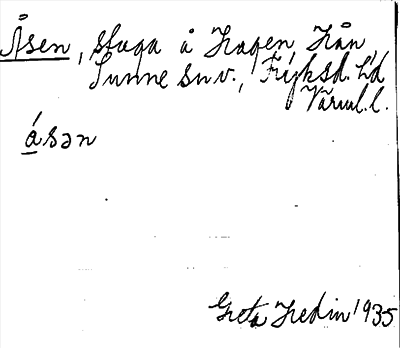 Åsen, stuga å Hagen, Hån,
Sunne snv., Fryksd. hd
Värml. l.
ásən
Greta Hedin 1935